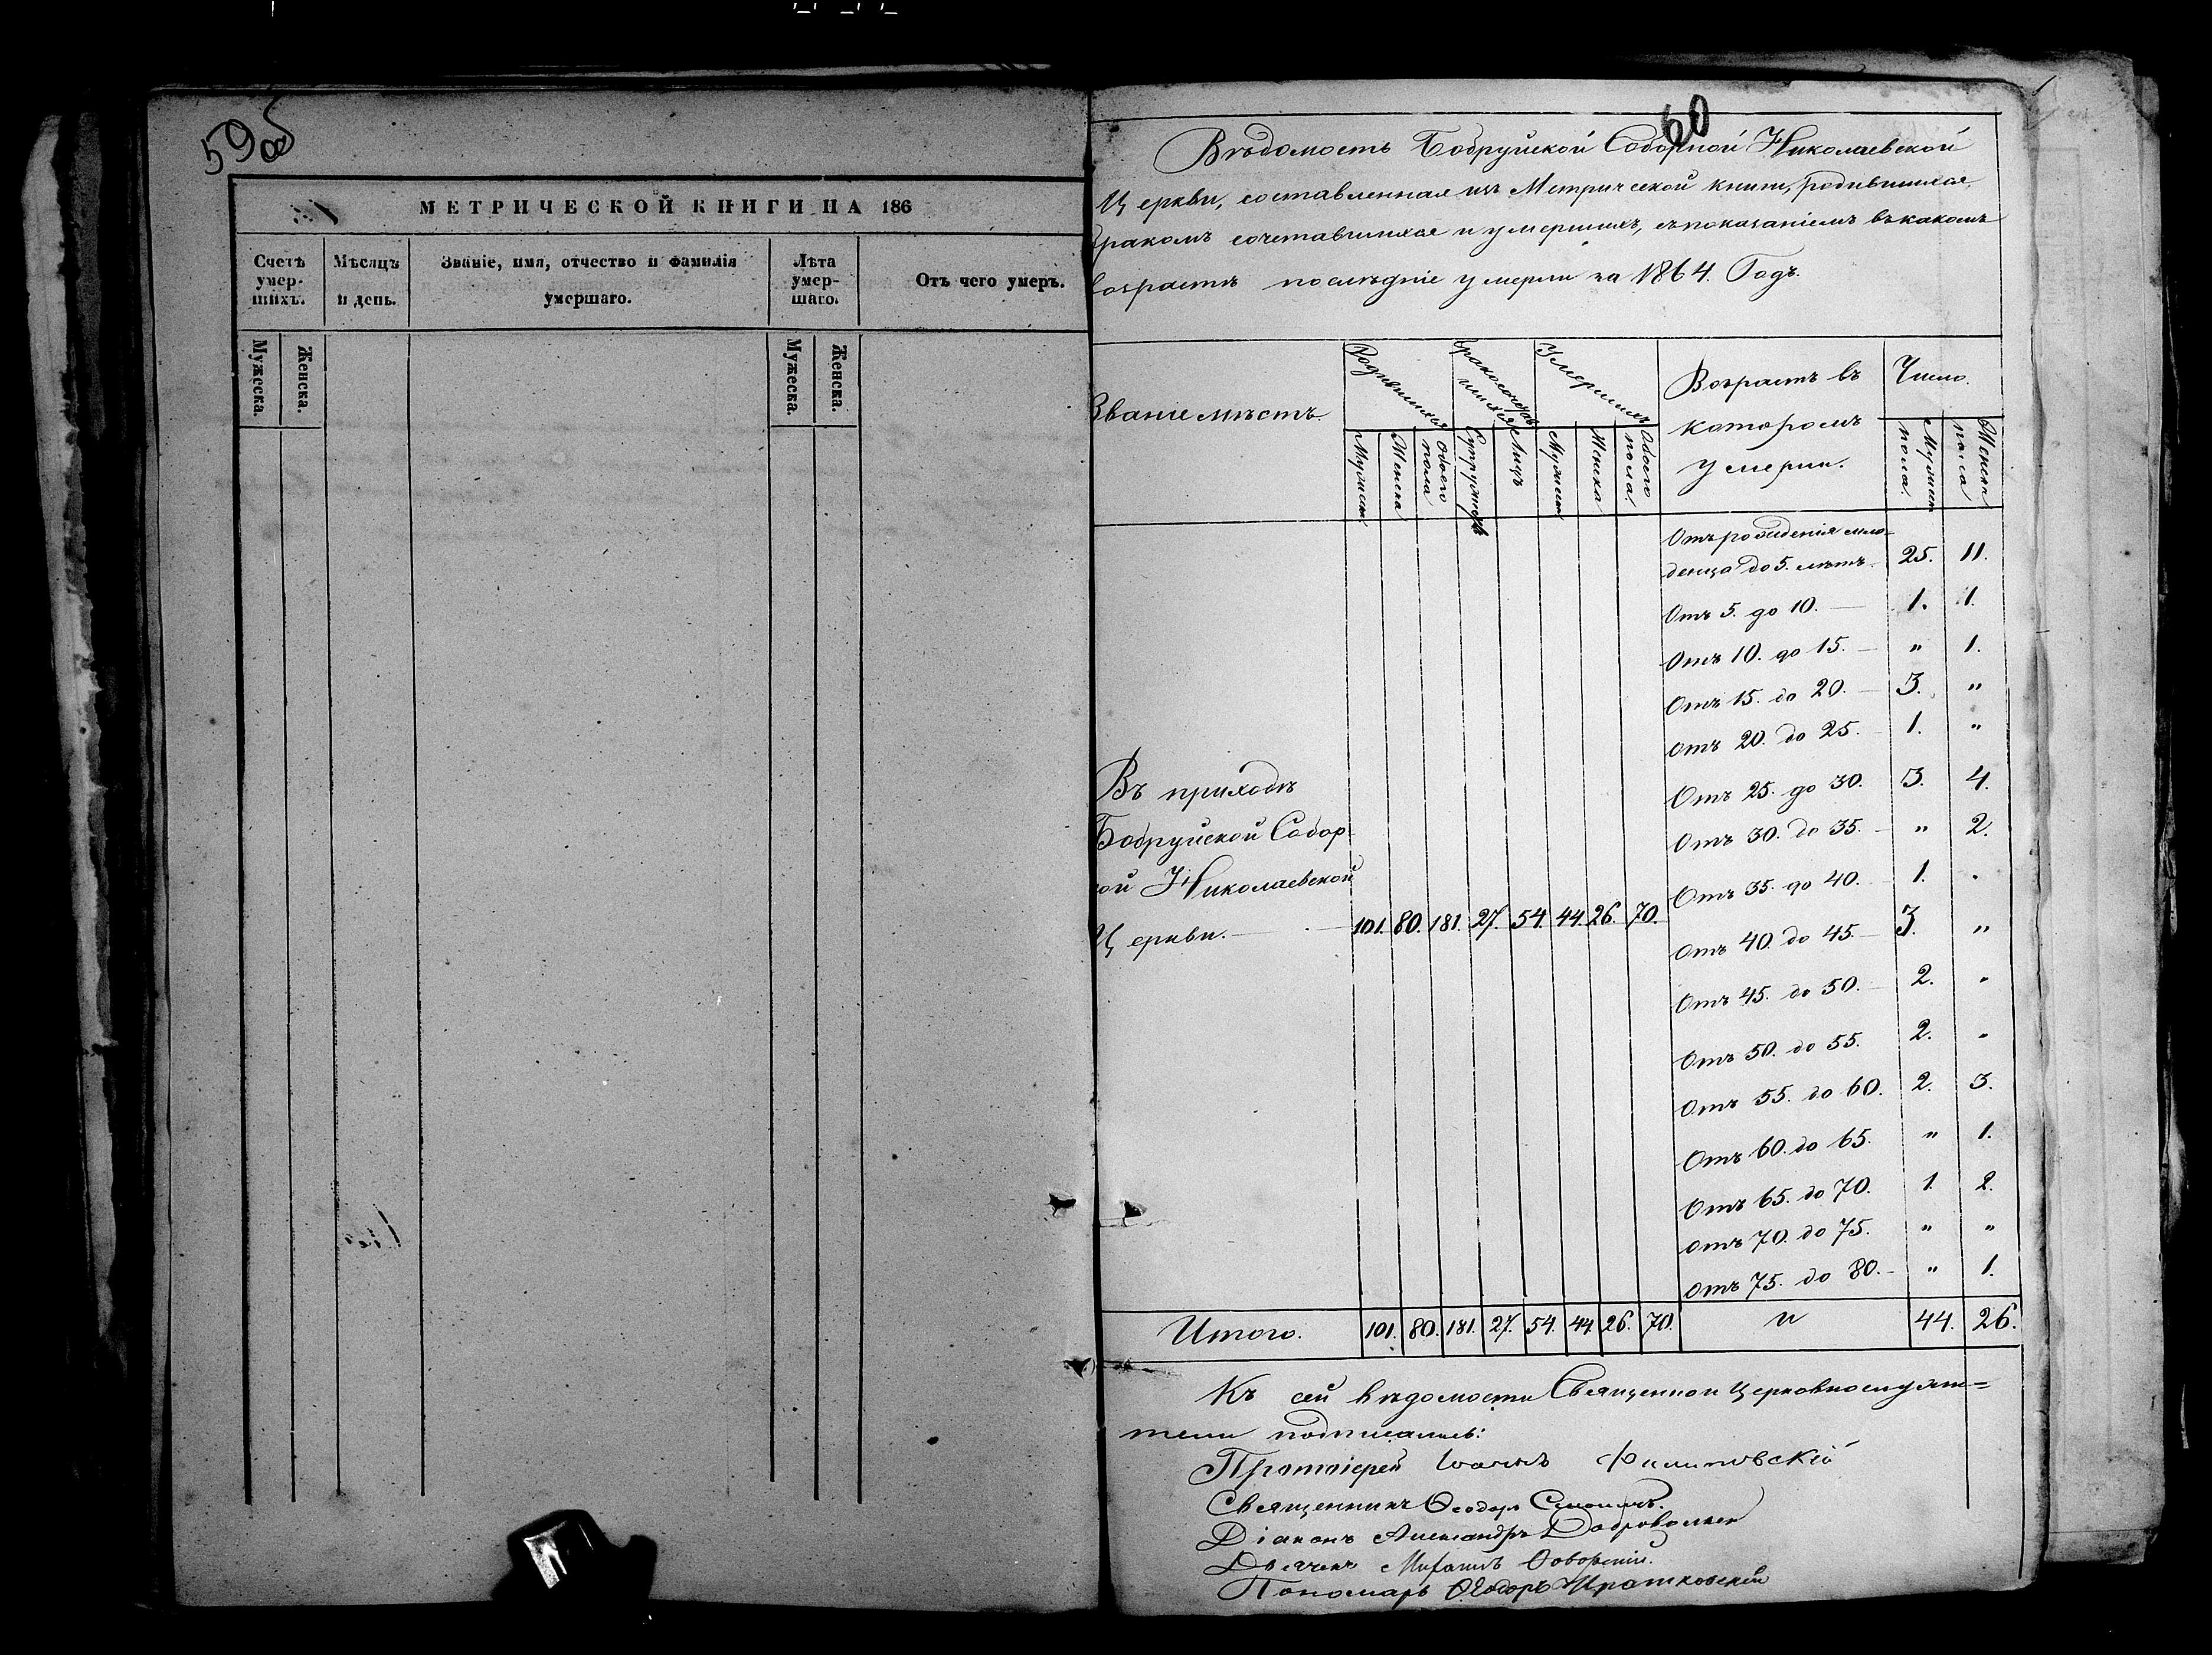 59об
МЕТРИЧЕСКОЙ КНИГИ НА 186
Счетъ умер-шихъ.
Мѣсяцъ и день.
Званіе, имя, отчество и фамилія умершаго.
Лѣта умер-шаго.
Отъ чего умеръ.
Мужеска.
Женска.
Мужеска.
Женска.
60
Вѣдомость Бобруйской Соборной Николаевской
Церкви, составленная изъ Метрической книги, родившихся,
бракомъ сочетавшихся и умершихъ, съ показаніемъ въ какомъ
возрастѣ послѣдніе умерли за 1864. Годъ.
Званіе мѣстъ.
Родившихся
Умершихъ
Возрастъ въ
котором
умерли.
Число.
Мужеск
Женска
Обоего пола
Супружествъ
Лицъ
Мужеск
Женска
Обоего пола.
Мужеск пола.
Женск пола
Отъ рожденія мла-
денца до 5. лѣтъ. 25. 11.
Отъ 5. до 10. — 1. 1.
Отъ 10. до 15. — " 1.
Отъ 15. до 20. — 3. "
Отъ 20. до 25. — 1. "
Отъ 25. до 30. 3. 4.
Отъ 30. до 35. — " 2.
Отъ 35. до 40. — 1. "
Отъ 40. до 45. — 3. "
Отъ 45. до 50. — 2. "
Отъ 50. до 55. 2. "
Отъ 55. до 60. 2. 3.
Отъ 60. до 65. " 1.
Отъ 65. до 70. 1. 2.
Отъ 70. до 75. " "
Отъ 75. до 80. — " 1.
Въ приходѣ
Бобруйской Собор-
ной Николаевской
Церкви. — 101. 80. 181. 27. 54. 44. 26. 70.
Итого. 101. 80. 181. 27. 54. 44. 26. 70. " 44. 26.
Къ сей вѣдомости Священно и церковнослужи=
тели подписались:
Протоіерей Іоаннъ Филиповскій
Священникъ Ѳеодоръ
Діаконъ Александръ
Дьячекъ Михаилъ
Пономарь Ѳеодоръ